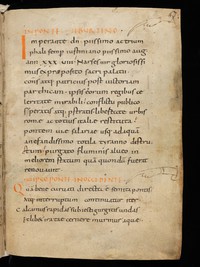 IN PONTE TIBURTINO
Imperante dn piissimo ac trium
phali semp iustiniano piissimo aug
ann xxxviii Narses uir gloriosissi
mus ex preposito sacri palatii
excons atq patricius post uictoriam
parthicam ipsis eorum regibus ce
leritate mirabili conflictu publico
superatis atq; pstratis libertate urbis
rome ac totius italie restituta
pontem uie salarie usq ad aqua
a nefandissimo totila tyranno destru
ctum purgato fluminis alueo in
meliorem statum qua quonda fuerat
renouauit
Qua bene curuati directa e semita pontis
Atq interruptum continuatur iter
Calcamus rapidas subiecti gurgitis undas
Et libet irate cernere murmur aque